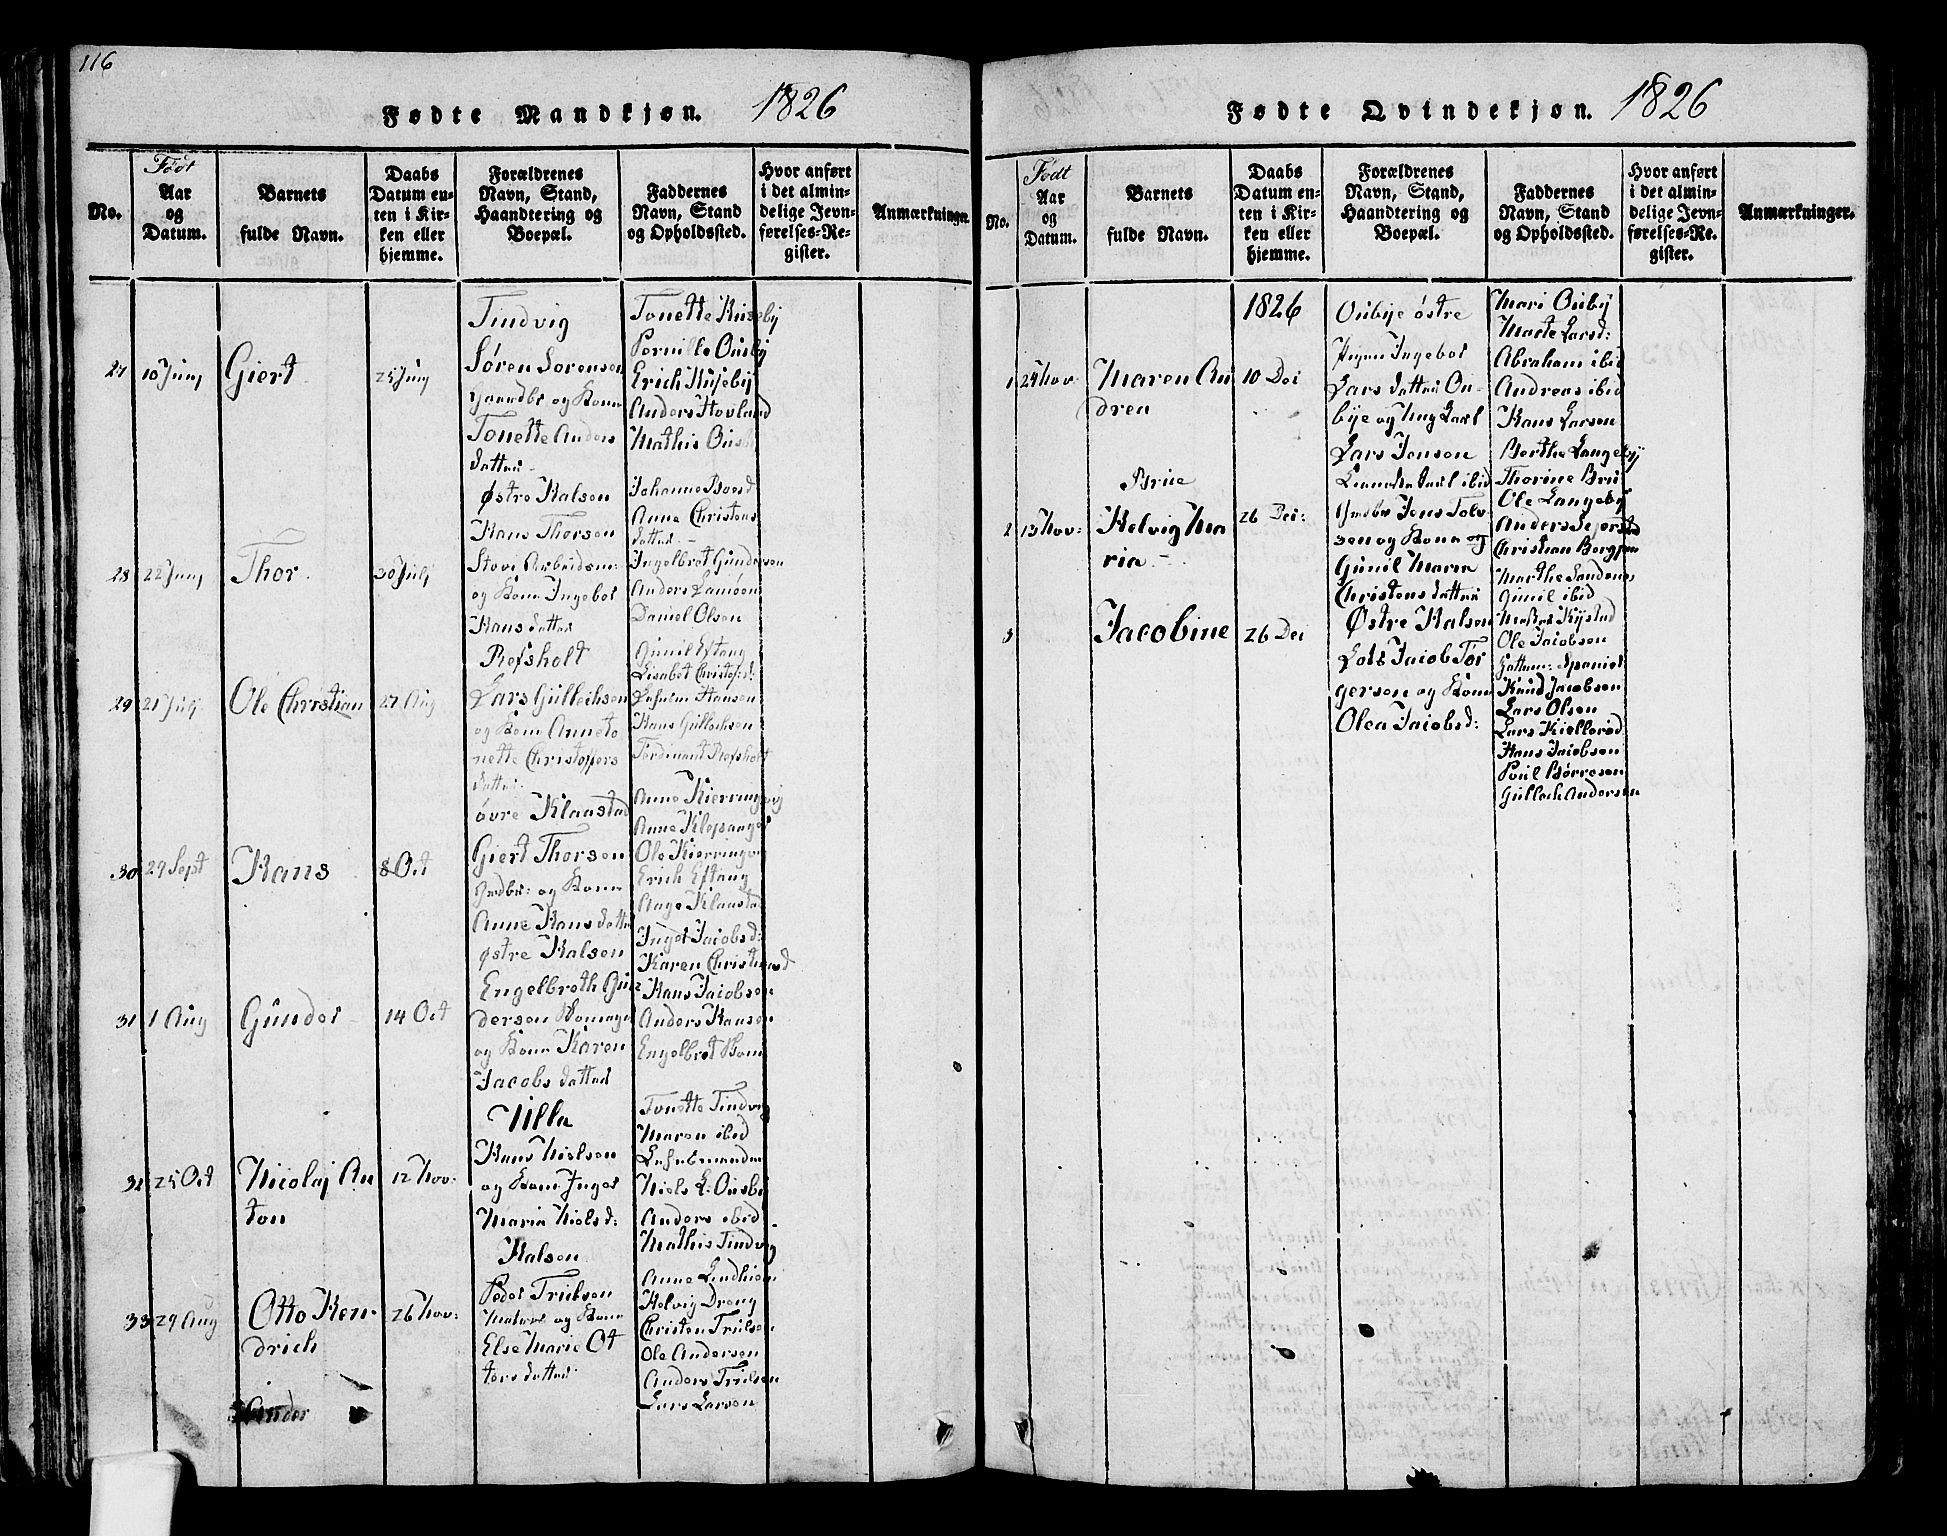 116
Fødte Mandkjøn. 1826
No.
Født
Aar
og
Datum.
Barnets
fulde Navn.
Daabs
Datum en-
ten i Kir-
ken eller
hjemme.
Forældrenes
Navn, Stand,
Haandtering og
Boepæl.
Faddernes
Navn, Stand
og Opholdssted.
Hvor anført
i det almin-
delige Jevn-
førelses-Re-
gister.
Anmærkninger.
27
10 Juny
Giert
25 Juny
Tindvig
Søren Sørensen
og Kone
Tonette Anders
datter
Tonette Huseby
Pernille Ousby
Erich Huseby
Anders Hovland
Mathis Ousby
28
22 Juny
Thor
30 July
Østre Halsen
Hans Thorsen
og Kone Ingebor
Hans datter
Johanne
Anne Christens
datter
Ingelbret Gundersen
Anders
Daniel Olsen
29
21 July
Ole Christian
27 Aug
Refsholt
Lars Gulleichsen
og Kone Anneto
nette Christoffers
datter
Gunil Eftang
Lisabet Christofsd:
Hansen
Hans Gullichsen
Ferdinant Refsholt
30
29 Sept
Hans
8 Oct
øvre Klaastad
Giert Thorsen
og Kone
Anne Hans datter
Anne Kierringvig
Anne
Ole Kierringvig
Erich Eftang
Aage Klaastad
31
1 Aug
Gunder
14 Oct
østre Halsen
Engelbreth Gun
dersen
og Kone Karen
Jacobs datter
Inger Jacobsd:
Karen Christiansd
Hans Jacobsen
Anders Hansen
Engelbret
32
25 Oct
Nicolaj An
ton
12 Nov:
Ulla
Hans Nielsen
og Kone Inger
Maria Nielsd:
Tonette Tindvig
Maren ibid
Niels L. Ousby
Anders ibid
Mathis Tindvig
33
29 Aug
Otto Hen-
drich
26 Nov:
Halsen
Peder Trulsen
og Kone
Else Marie Ot
ters datter
Anne Lindhien
Helvig Drong
Christen Trulsen
Ole Andersen
Anders Trulsen
Lars Larsen
Fødte Qvindekjøn. 1826
No.
Født
Aar
og
Datum.
Barnets
fulde Navn.
Daabs
Datum en-
ten i Kir-
ken eller
hjemme.
Forældrenes
Navn, Stand,
Haandtering og
Boepæl.
Faddernes
Navn, Stand
og Opholdssted.
Hvor anført
i det almin-
delige Jevn-
førelses-Re-
gister.
Anmærkninger.
1826
1
24 Nov
Maren An
drea
10 Dec
Ousbye østre
Pigen Ingebor
Lars datter Ou-
bye og Ung Karl
Lars Jensen
ibid
Mari Ousby
Marte Larsd:
Abraham ibid
Andreas ibid
Hans Larsen
2
13 Nov:
Helvig Ma
ria
26 Dec:
Jens Tolv-
sen og Kone
Gunil Maria
Christens datter
Berthe Langeby
Thorine Brue
Ole Langeby
Anders
Christian
Marthe Sandenes
Gunil ibid
3
Jacobine
26 Dec
Østre Halsen
Lods Jacob Tor
gersen og Kone
Olea Jacobsd:
Ole Jacobsen
Knud Jacobsen
Lars Olsen
Lars Kiellerød
Hans Jacobsen
Poul Børresen
Gulloch Andersen